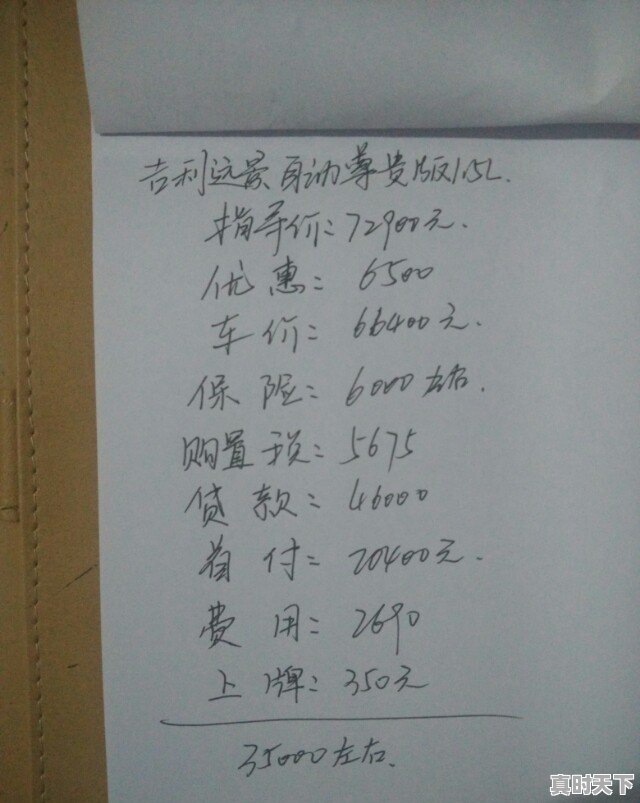 吉利远景自动尊贵版1.5L.
指导价: 72900元.
优惠: 6500
车价: 66400元.
保险: 6000左右.
购置税: 5675
贷款: 46000
首付: 20400元.
费用: 2690
上牌: 350元
35000左右.
真时天下